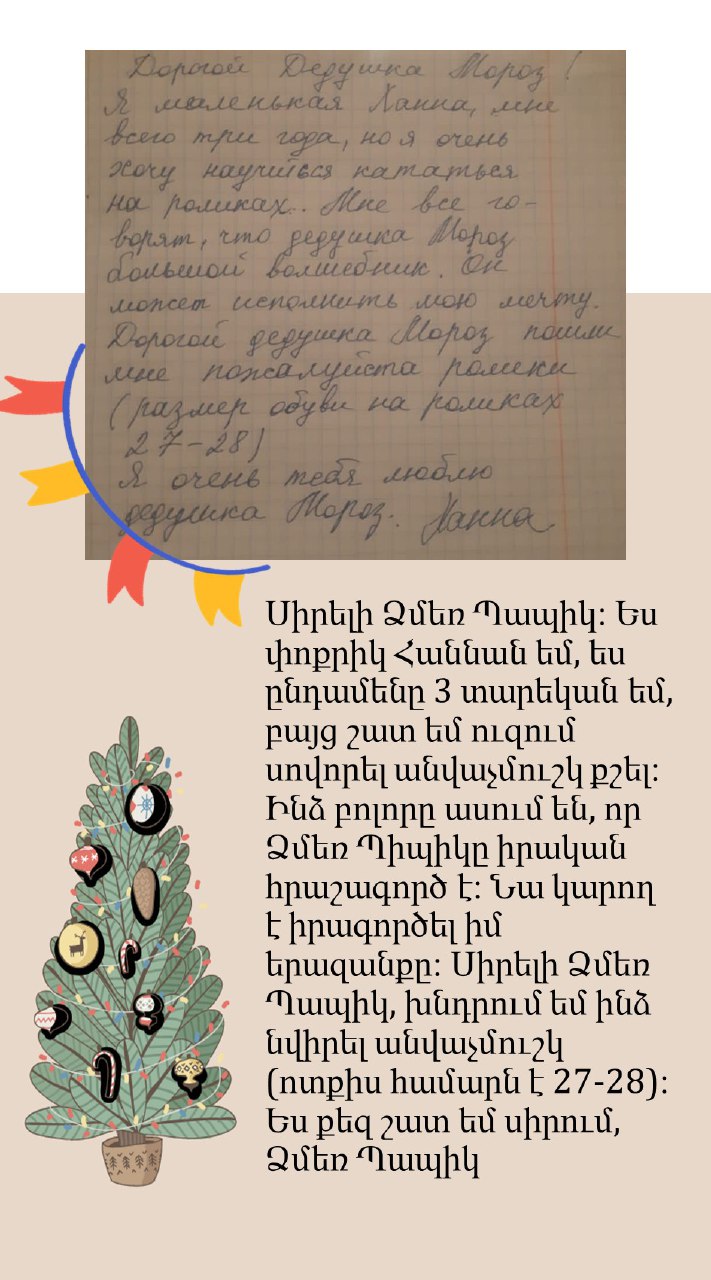 Дорогой Дедушка Мороз!
Я маленькая Ханна, мне
всего три года, но я очень
хочу научиться кататься
на роликах.. Мне все го-
ворят, что дедушка Мороз
большой волшебник. Он
может исполнить мою мечту.
Дорогой дедушка Мороз пошли
мне пожалуйста ролики
(размер обуви на роликах
27-28)
Я очень тебя люблю
дедушка Мороз. Ханна
Սիրելի Ձմեռ Պապիկ։ Ես
փոքրիկ Հաննան եմ, ես
ընդամենը 3 տարեկան եմ,
բայց շատ եմ ուզում
սովորել անվաչմուշկ քշել։
Ինձ բոլորը ասում են, որ
Ձմեռ Պիպիկը իրական
հրաշագործ է։ Նա կարող
է իրագործել իմ
երազանքը։ Սիրելի Ձմեռ
Պապիկ, խնդրում եմ ինձ
նվիրել անվաչմուշկ
(ոտքիս համարն է 27-28)։
Ես քեզ շատ եմ սիրում,
Ձմեռ Պապիկ